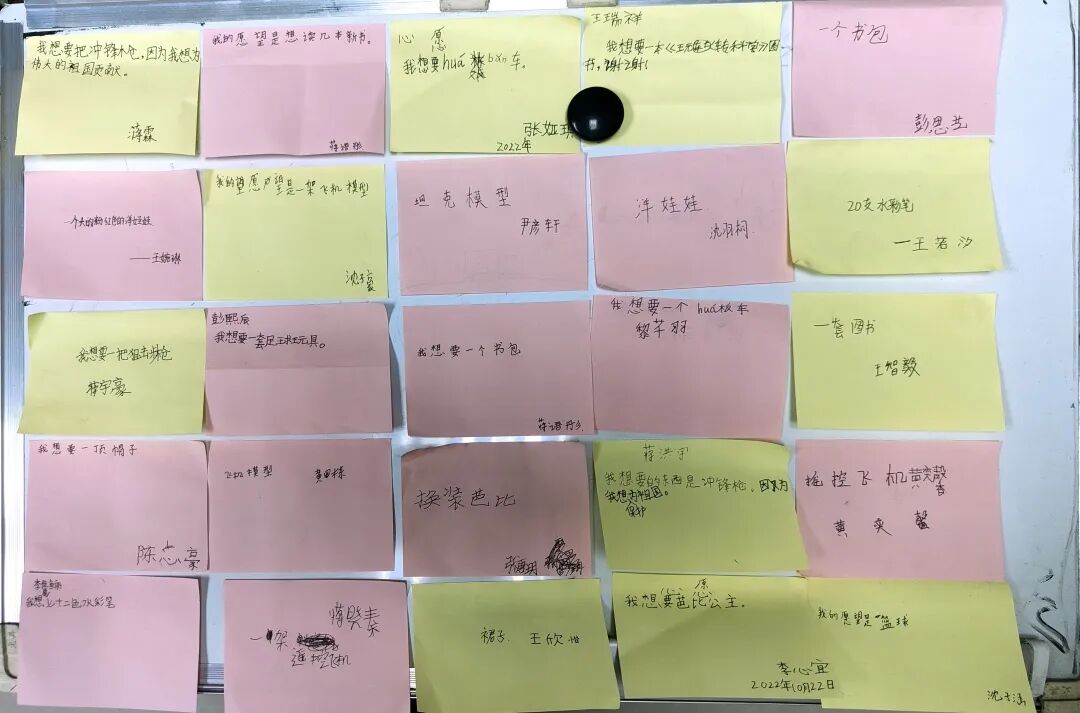 我想要把冲锋木仓，因为我想为
伟大的祖国贡献。
蒋霖
我的愿望是想读几本新书。
心愿
我想要huá bǎn车。
张娅琪
2022年
王瑞祥
我想要一本
书，谢谢！
一个书包
彭思兰
一个大的粉红色的洋娃娃
——王婉琳
我的愿望是一架飞机模型
沈子豪
坦克模型
尹彦轩
洋娃娃
沈羽桐
20支水彩笔
—王若汐
我想要一把狙击枪
蒋宇豪
彭熙辰
我想要一套足球玩具。
我想要一个书包
我想要一个huá板车
黎芊羽
一套图书
王智毅
我想要一顶帽子
陈志豪
飞机模型
黄思栋
换装芭比
张雨玥
蒋洪宇
我想要的东西是冲锋枪，因为
我想保护祖国。
摇控飞机
黄奕馨
我想之十二色水彩笔
蒋晓秦
一架
遥控飞机
裙子 王欣怡
心愿
我想要芭比公主。
李心宜
2022年10月22日
我的愿望是篮球
沈子涵